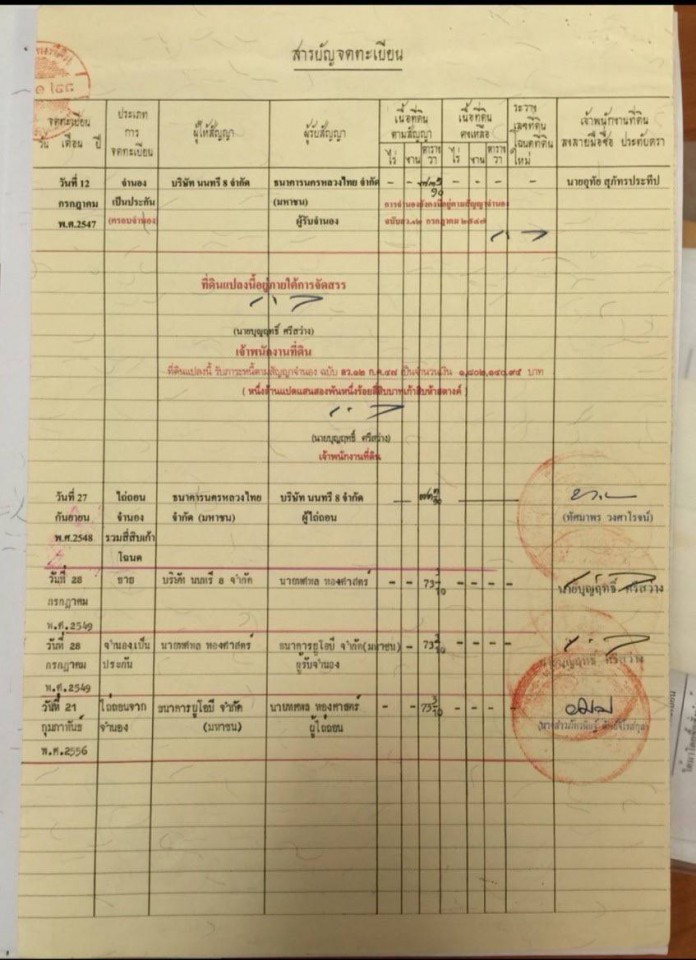 สารบัญจดทะเบียน
จดทะเบียน
วัน เดือน ปี
ประเภท
การ
จดทะเบียน
ผู้ให้สัญญา
ผู้รับสัญญา
เนื้อที่ดิน
ตามสัญญา
ไร่ งาน ตาราง
วา
เนื้อที่ดิน
คงเหลือ
ไร่ งาน ตาราง
วา
ระวาง
เลขที่ดิน
โฉนดที่ดิน
ใหม่
เจ้าพนักงานที่ดิน
ลงลายมือชื่อ ประทับตรา
วันที่ 12 จำนอง บริษัท นนทรี 8 จำกัด ธนาคารนครหลวงไทย จำกัด - - - - - - นายอุทัย สุภัทรประทีป
กรกฎาคม เป็นประกัน (มหาชน) การจำนองยังคงมีอยู่ตามสัญญาจำนอง
พ.ศ.2547 (ครอบจำนอง) ผู้รับจำนอง ฉบับลว.๑๒ กรกฎาคม ๒๕๔๗
ที่ดินแปลงนี้อยู่ภายใต้การจัดสรร
(นายบุญฤทธิ์ ศรีสว่าง)
เจ้าพนักงานที่ดิน
ที่ดินแปลงนี้ รับภาระหนี้ตามสัญญาจำนอง ฉบับ ลว.๑๒ ก.ค.๔๗ เป็นจำนวนเงิน ๑,๘๐๒,๑๔๐.๙๕ บาท
( หนึ่งล้านแปดแสนสองพันหนึ่งร้อยสี่สิบบาทเก้าสิบห้าสตางค์ )
(นายบุญฤทธิ์ ศรีสว่าง)
เจ้าพนักงานที่ดิน
วันที่ 27 ไถ่ถอน ธนาคารนครหลวงไทย บริษัท นนทรี 8 จำกัด
กันยายน จำนอง จำกัด (มหาชน) ผู้ไถ่ถอน (ทัศมาพร วงศาโรจน์)
พ.ศ.2548 รวมสี่สิบเก้า
โฉนด
วันที่ 28 ขาย บริษัท นนทรี 8 จำกัด นายทศพล ทองศาสตร์ - - 73 3/10 - - - - นายบุญฤทธิ์ ศรีสว่าง
กรกฎาคม
พ.ศ.2549
วันที่ 28 จำนองเป็น นายทศพล ทองศาสตร์ ธนาคารยูโอบี จำกัด(มหาชน) - - 73 3/10 - - - -
กรกฎาคม ประกัน ผู้รับจำนอง นายบุญฤทธิ์ ศรีสว่าง
พ.ศ.2549
วันที่ 21 ไถ่ถอนจาก ธนาคารยูโอบี จำกัด นายทศพล ทองศาสตร์ - - 73 3/10 - - - -
กุมภาพันธ์ จำนอง (มหาชน) ผู้ไถ่ถอน
พ.ศ.2556